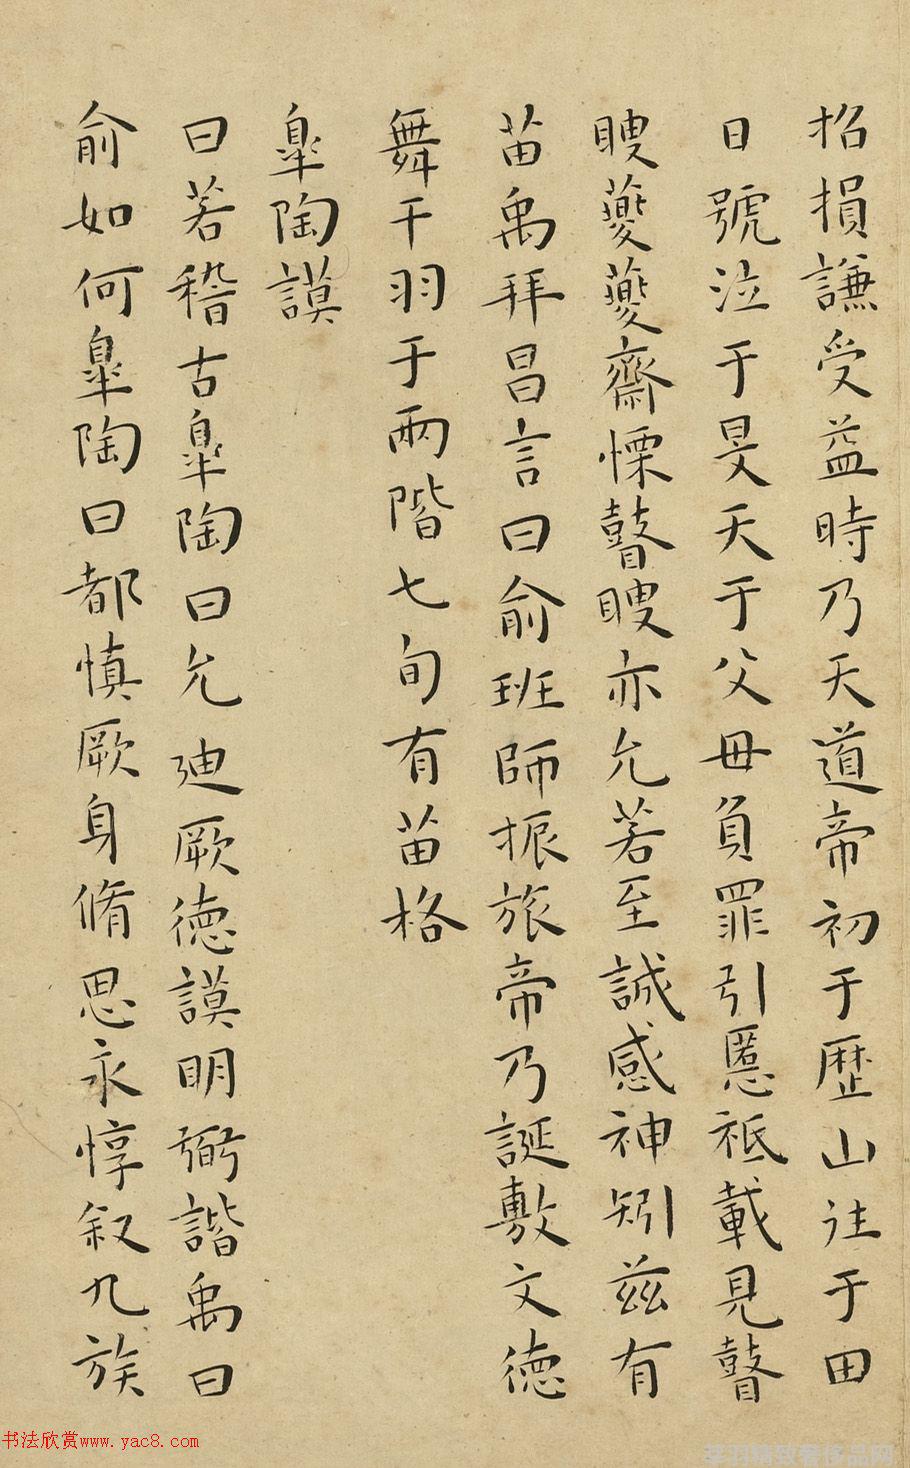 招損謙受益時乃天道帝初于歷山往于田
日號泣于旻天于父母負罪引慝祗載見瞽
瞍夔夔齋慄瞽瞍亦允若至誠感神矧茲有
苗禹拜昌言曰俞班師振旅帝乃誕敷文德
舞干羽于兩階七旬有苗格
皐陶謨
曰若稽古皐陶曰允迪厥德謨明弼諧禹曰
俞如何皐陶曰都慎厥身脩思永惇叙九族
书法欣赏www.yac8.com